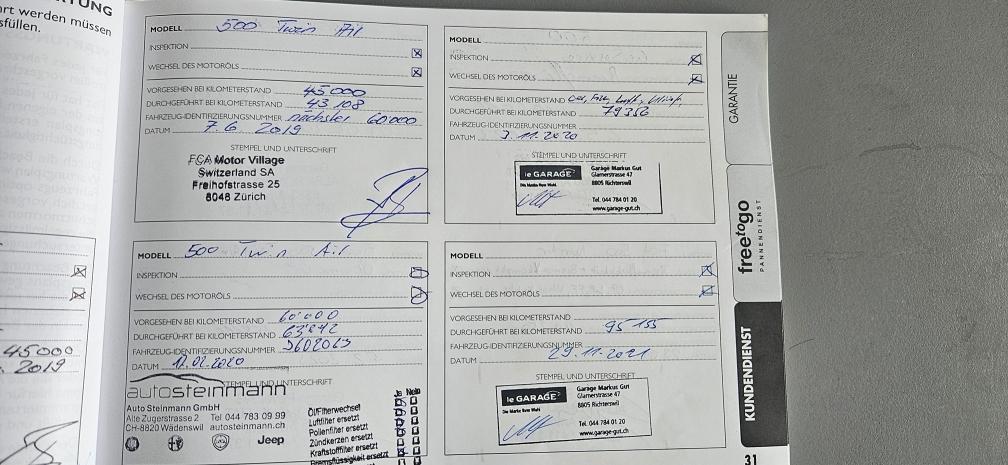 TUNG
rt werden müssen
sfüllen.
45000
2019
MODELL 500 Twin Air
INSPEKTION
WECHSEL DES MOTORÖLS
VORGESEHEN BEI KILOMETERSTAND 45000
DURCHGEFÜHRT BEI KILOMETERSTAND 43108
FAHRZEUG-IDENTIFIZIERUNGSNUMMER nächster 60000
DATUM 7.6. 2019
STEMPEL UND UNTERSCHRIFT
FCA Motor Village
Switzerland SA
Freihofstrasse 25
8048 Zürich
MODELL
INSPEKTION
WECHSEL DES MOTORÖLS
VORGESEHEN BEI KILOMETERSTAND
DURCHGEFÜHRT BEI KILOMETERSTAND 79356
FAHRZEUG-IDENTIFIZIERUNGSNUMMER
DATUM 3.11.2020
STEMPEL UND UNTERSCHRIFT
le GARAGE
Die Marke Ihrer Wahl.
Garage Markus Gut
Glarnerstrasse 47
8805 Richterswil
Tel. 044 784 01 20
www.garage-gut.ch
MODELL 500 Twin Air
INSPEKTION
WECHSEL DES MOTORÖLS
VORGESEHEN BEI KILOMETERSTAND 60'000
DURCHGEFÜHRT BEI KILOMETERSTAND
FAHRZEUG-IDENTIFIZIERUNGSNUMMER
DATUM 02.2020
STEMPEL UND UNTERSCHRIFT
autosteinmann
Auto Steinmann GmbH
Alte Zugerstrasse 2 Tel 044 783 09 99
CH-8820 Wädenswil autosteinmann.ch
Jeep
Ja Nein
Ölfilterwechsel
Luftfilter ersetzt
Pollenfilter ersetzt
Zündkerzen ersetzt
Kraftstofffilter ersetzt
Bremsflüssigkeit ersetzt
MODELL
INSPEKTION
WECHSEL DES MOTORÖLS
VORGESEHEN BEI KILOMETERSTAND
DURCHGEFÜHRT BEI KILOMETERSTAND 95155
FAHRZEUG-IDENTIFIZIERUNGSNUMMER
DATUM 29.11.2021
STEMPEL UND UNTERSCHRIFT
le GARAGE
Die Marke Ihrer Wahl.
Garage Markus Gut
Glarnerstrasse 47
8805 Richterswil
Tel. 044 784 01 20
www.garage-gut.ch
GARANTIE
freetogo
PANNENDIENST
KUNDENDIENST
31